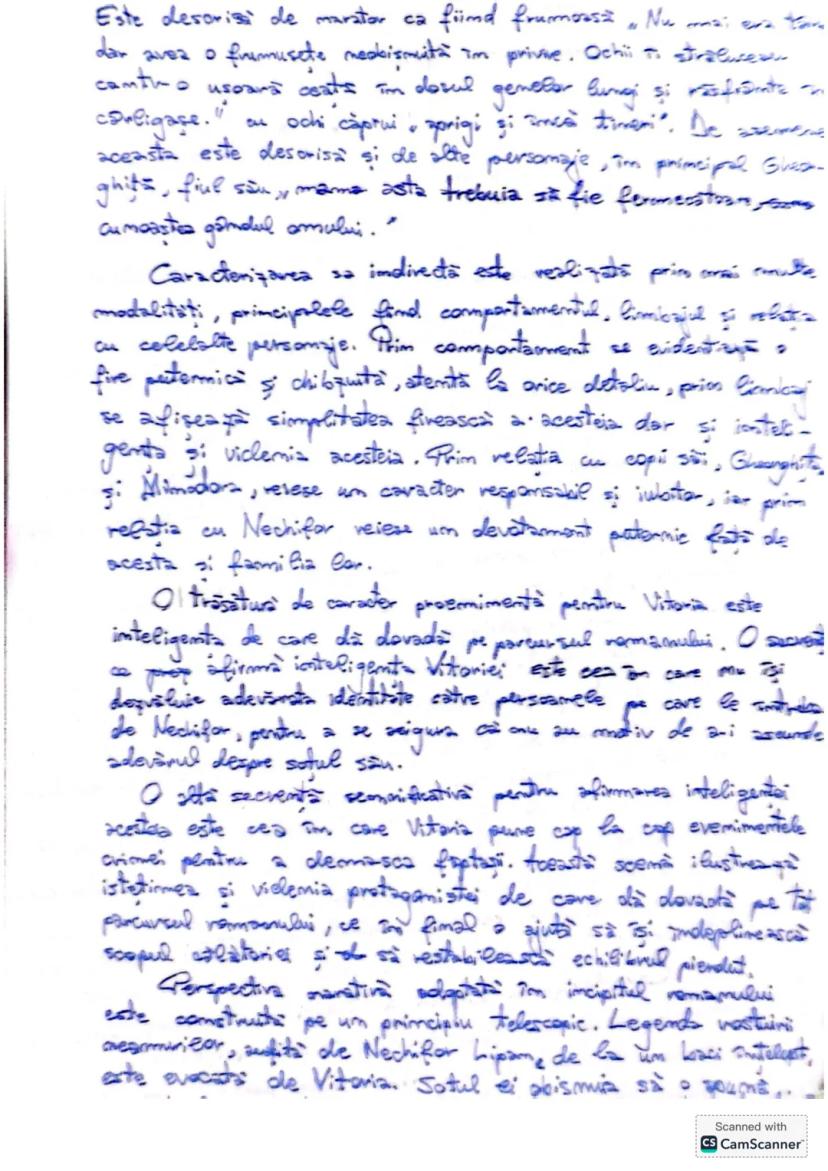 Este descrisă de narator ca fiind frumoasă „Nu mai era tân
dar avea o frumusețe neobișnuită în privire. Ochii îi străluceau
cantr-o ușoară ceață în dosul genelor lungi și răsfrânte în
cârligașe.” cu ochi căprui „aprigi și încă tineri”. De asemene
aceasta este descrisă și de alte personaje, în principal Gheor-
ghiță, fiul său, „mama asta trebuia să fie fermecătoare,
cunoaștea gândul omului.”
Caracterizarea sa indirectă este realizată prin mai multe
modalități, principalele fiind comportamentul, limbajul și relația
cu celelalte personaje. Prin comportament se evidențiază o
fire puternică și chibzuită, atentă la orice detaliu, prin limbaj
se afișează simplitatea firească a acesteia dar și inteli-
gența și viclenia acesteia. Prin relația cu copii săi, Gheorghiță
și Minodora, reiese un caracter responsabil și iubitor, iar prin
relația cu Nechifor reiese un devotament puternic față de
acesta și familia lor.
O trăsătură de caracter proeminentă pentru Vitoria este
inteligența de care dă dovadă pe parcursul romanului. O secvenț
ce afirmă inteligența Vitoriei este cea în care nu își
dezvăluie adevărata identitate către persoanele pe care le întreba
de Nechifor, pentru a se asigura că nu au motiv de a-i ascunde
adevărul despre soțul său.
O altă secvență semnificativă pentru afirmarea inteligenței
acesteia este cea în care Vitoria pune cap la cap evenimentele
crimei pentru a demasca făptașii. Această scenă ilustrează
istețimea și viclenia protagonistei de care dă dovadă pe tot
parcursul romanului, ce în final o ajută să își îndeplinească
scopul călătoriei și să restabilească echilibrul pierdut.
Perspectiva narativă adoptată în incipitul romanului
este construită pe un principiu telescopic. Legenda rostuirii
neamurilor, auzită de Nechifor Lipan, de la un baci înțelept,
este evocată de Vitoria. Soțul ei obișnuia să o spună,
Scanned with
CS CamScanner